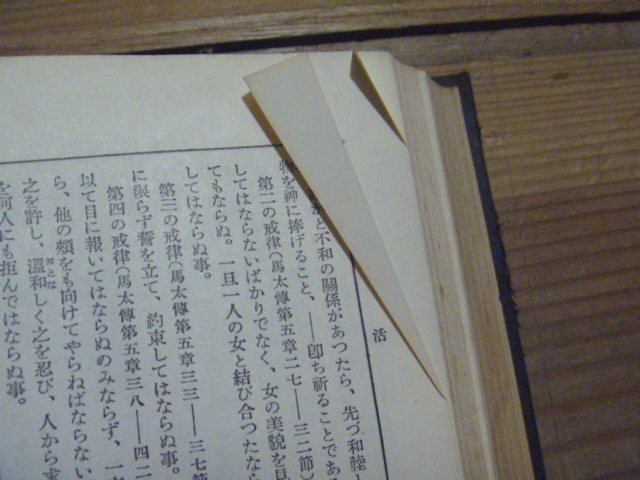 活
と不和の關係があつたら、先づ和睦
物を神に捧げること、——卽ち祈ることであ
第二の戒律(馬太傳第五章二七——三二節)
してはならないばかりでなく、女の美貌を見
てもならぬ。一旦一人の女と結び合つたなら
してはならぬ事。
第三の戒律(馬太傳第五章三三——三七節
に限らず誓を立て、約束してはならぬ事。
第四の戒律(馬太傳第五章三八——四二
以て目に報いてはならぬのみならず、一
ら、他の頰をも向けてやらねばならない
之を許し、溫和しく之を忍び、人から求
を何人にも拒んではならぬ事。